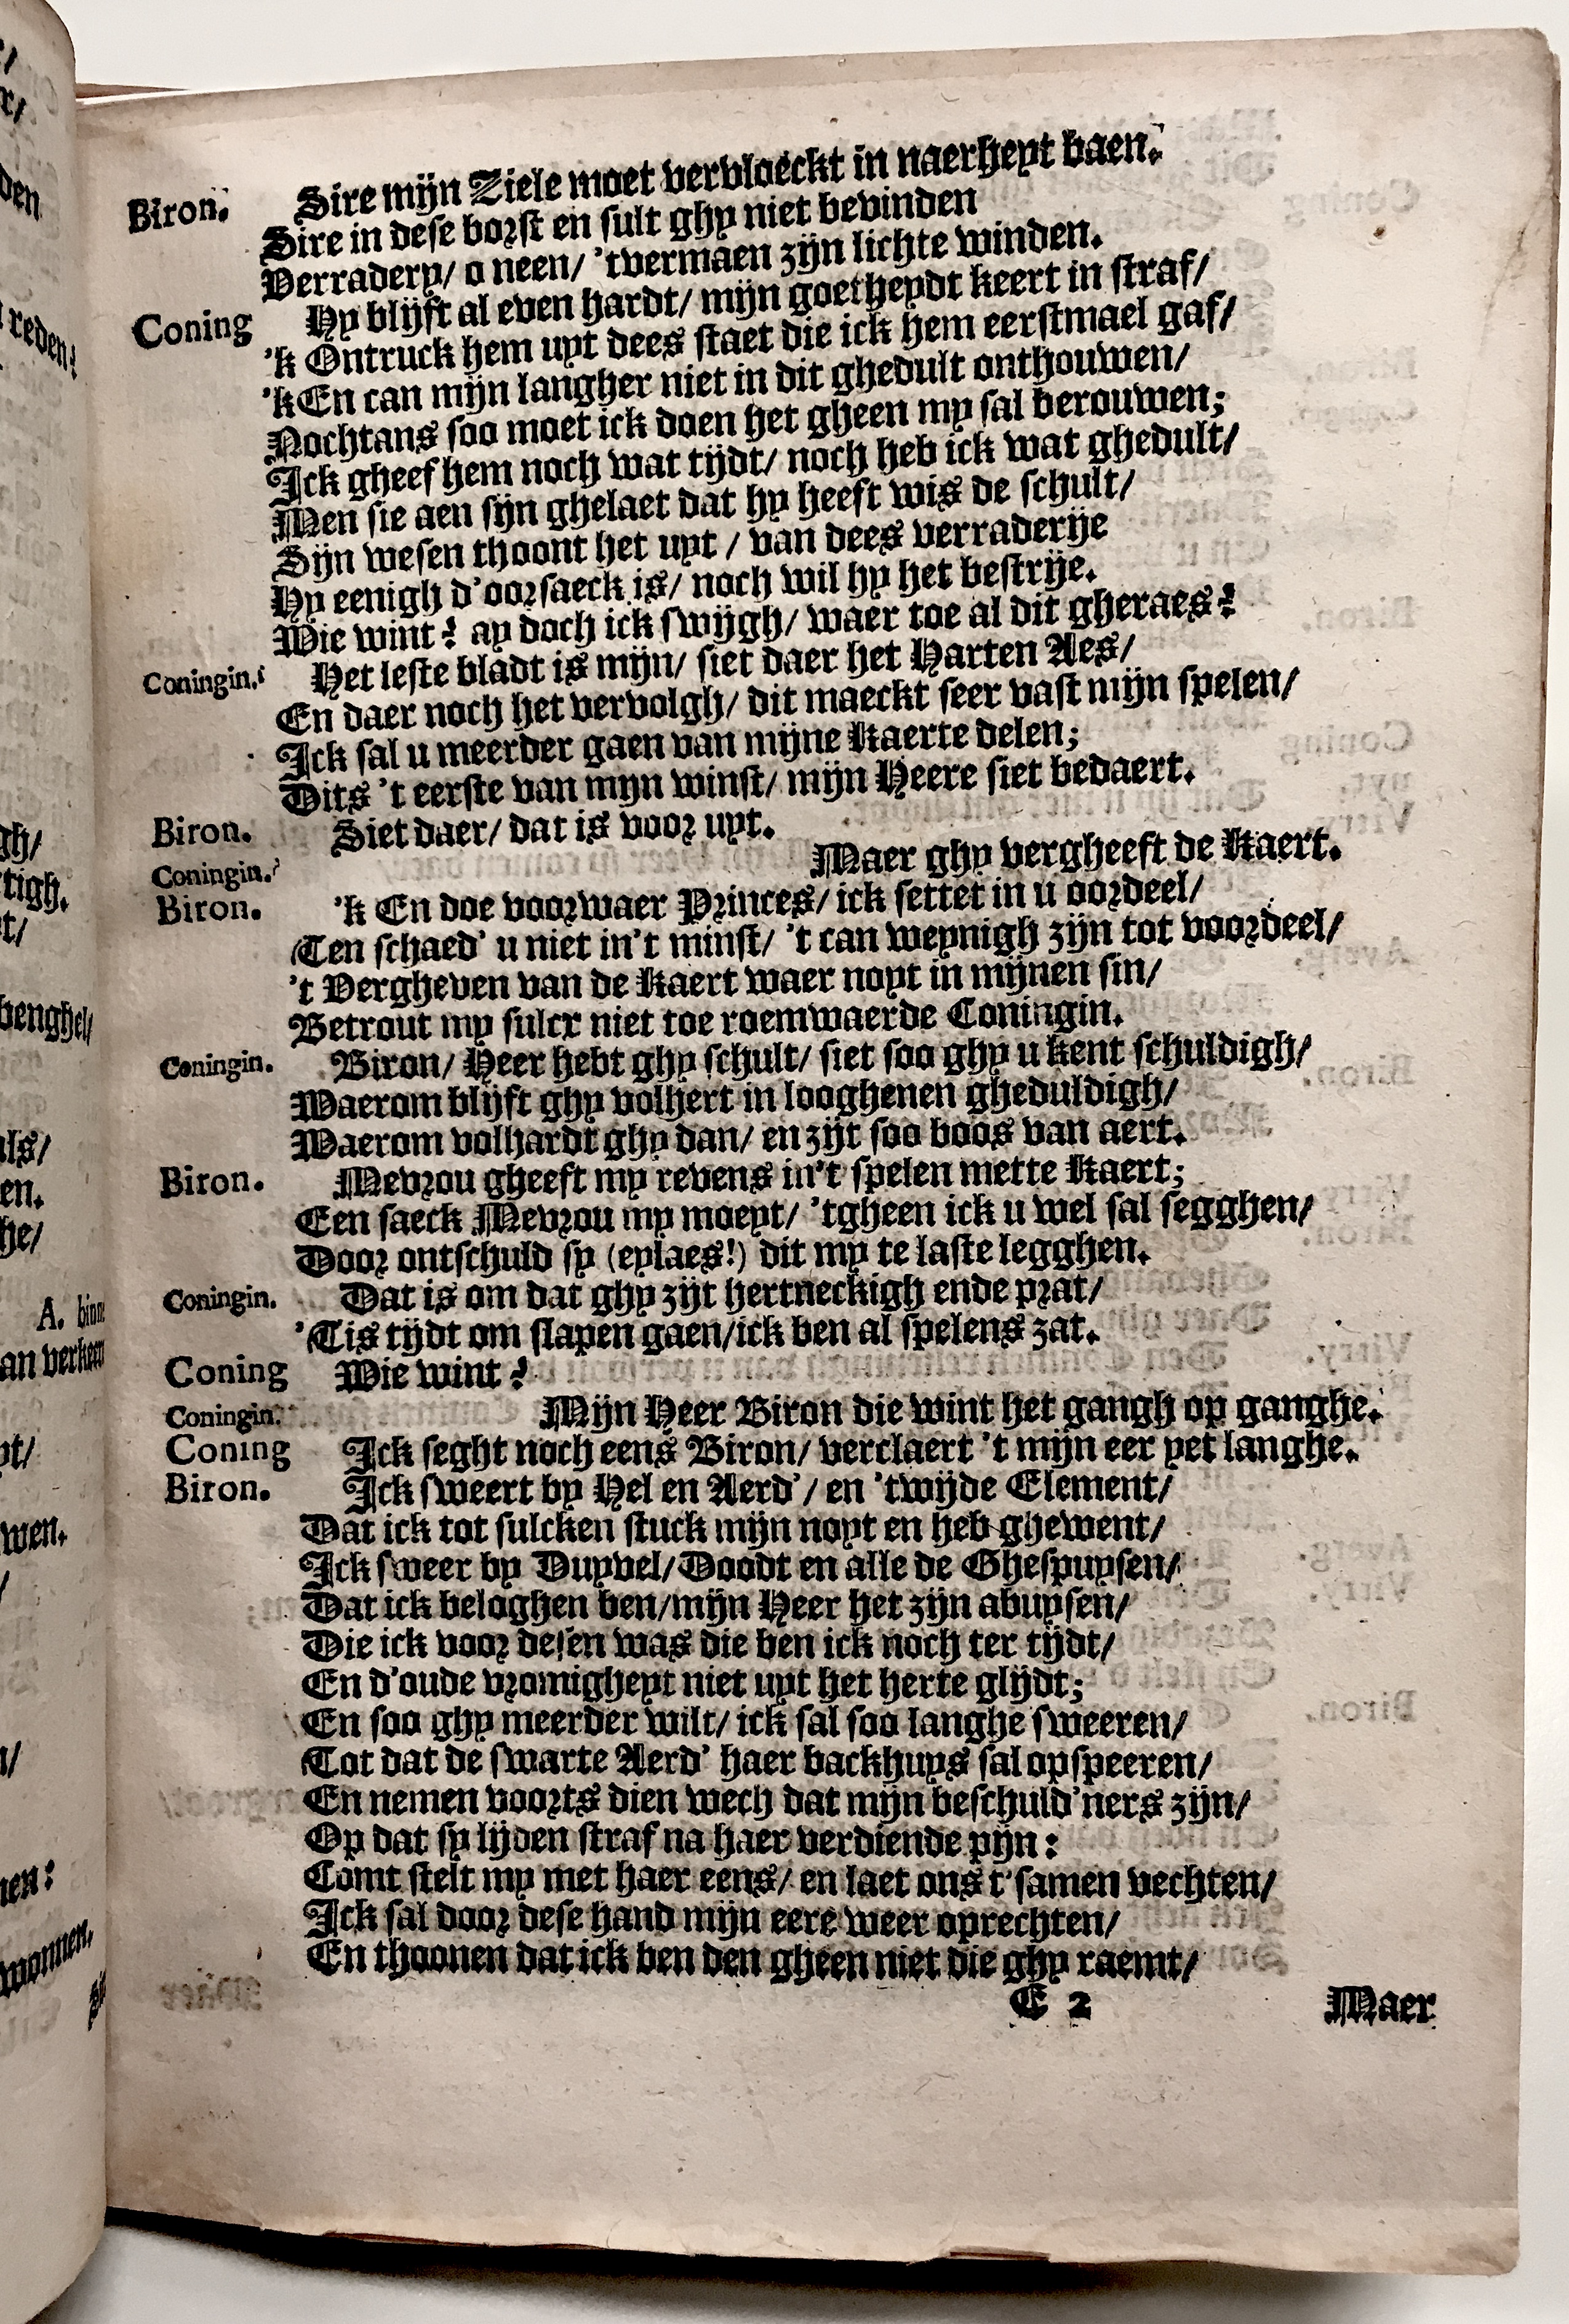 Biron. Sire mijn Ziele moet vervloeckt in naerheyt baen.
Sire in dese borst en sult ghy niet bevinden
Verradery/ o neen/ 'tvermaen zijn lichte winden.
Coning Hy blijft al even hardt/ mijn goetheydt keert in straf/
'k Ontruck hem uyt dees staet die ick hem eerstmael gaf/
'kEn can mijn langher niet in dit ghedult onthouwen/
Nochtans soo moet ick doen het gheen my sal berouwen;
Ick gheef hem noch wat tijdt/ noch heb ick wat ghedult/
Men sie aen sijn ghelaet dat hy heeft wis de schult/
Sijn wesen thoont het uyt / van dees verraderije
Hy eenigh d'oorsaeck is/ noch wil hy het bestrije.
Wie wint? ay doch ick swijgh/ waer toe al dit gheraes?
Coningin. Het leste bladt is mijn/ siet daer het Harten Aes/
En daer noch het vervolgh/ dit maeckt seer vast mijn spelen/
Ick sal u meerder gaen van mijne Kaerte delen;
Dits 't eerste van mijn winst/ mijn Heere siet bedaert.
Biron. Siet daer/ dat is voor uyt.
Coningin. Maer ghy vergheeft de Kaert.
Biron. 'k En doe voorwaer Princes/ ick settet in u oordeel/
Ten schaed' u niet in't minst/ 't can weynigh zijn tot voordeel/
't Vergheven van de Kaert waer noyt in mijnen sin/
Betrout my sulcx niet toe roemwaerde Coningin.
Coningin. Biron/ Heer hebt ghy schult/ siet soo ghy u kent schuldigh/
Waerom blijft ghy volhert in looghenen gheduldigh/
Waerom volhardt ghy dan/ en zijt soo boos van aert.
Biron. Mevrou gheeft my revens in't spelen mette Kaert;
Een saeck Mevrou my moeyt/ 'tgheen ick u wel sal segghen/
Door ontschuld sy (eylaes!) dit my te laste legghen.
Coningin. Dat is om dat ghy zijt hertneckigh ende prat/
'Tis tijdt om slapen gaen/ick ben al spelens zat.
Coning Wie wint?
Coningin. Mijn Heer Biron die wint het gangh op ganghe.
Coning Ick seght noch eens Biron/ verclaert 't mijn eer yet langhe.
Biron. Ick sweert by Hel en Aerd'/ en 'twijde Element/
Dat ick tot sulcken stuck mijn noyt en heb ghewent/
Ick sweer by Duyvel/Doodt en alle de Ghespuysen/
Dat ick beloghen ben/mijn Heer het zijn abuysen/
Die ick voor desen was die ben ick noch ter tijdt/
En d'oude vromigheyt niet uyt het herte glijdt;
En soo ghy meerder wilt/ ick sal soo langhe sweeren/
Tot dat de swarte Aerd' haer backhuys sal opspeeren/
En nemen voorts dien wech dat mijn beschuld'ners zijn/
Op dat sy lijden straf na haer verdiende pijn:
Comt stelt my met haer eens/ en laet ons t'samen vechten/
Ick sal door dese hand mijn eere weer oprechten/
En thoonen dat ick ben den gheen niet die ghy raemt/
E 2 Maer